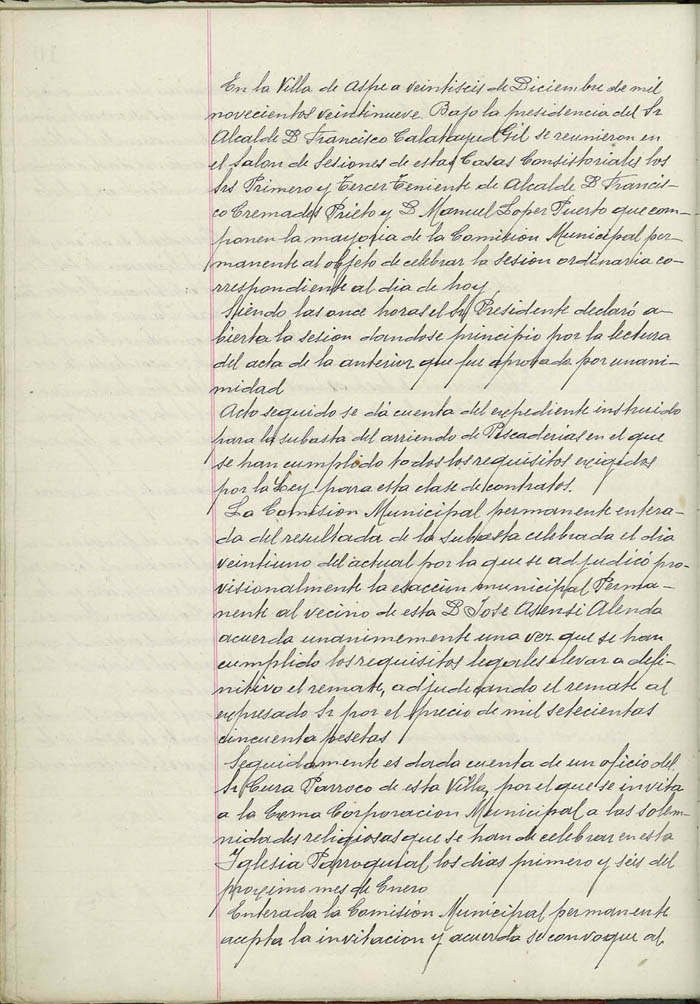 En la Villa de Aspe a veintiseis de Diciembre de mil
novecientos veintinueve. Bajo la presidencia del Sr
Alcalde D Francisco Calatayud Gil se reunieron en
el Salon de Sesiones de estas Casas Consistoriales los
Srs Primero y Tercer Teniente de Alcalde D Francis-
co Cremades Prieto y D Manuel Lopez Puerto que com-
ponen la mayoria de la Comision Municipal per-
manente al objeto de celebrar la sesion ordinaria co-
rrespondiente al dia de hoy
Siendo las once horas el Sr Presidente declaró a-
bierta la sesion dandose principio por la lectura
del acta de la anterior que fue aprobada por unani-
midad
Acto seguido se dá cuenta del expediente instruido
para la subasta del arriendo de Pescaderias en el que
se han cumplido todos los requisitos exigidos
por la Ley para esta clase de contratos.
La Comision Municipal permanente entera-
da del resultado de la subasta celebrada el dia
veintiuno del actual por la que se adjudicó pro-
visionalmente la exaccion municipal Perma-
nente al vecino de esta D Jose Asensi Alenda
acuerda unanimemente una vez que se han
cumplido los requisitos legales elevar a defi-
nitivo el remate, adjudicando el remate al
expresado Sr por el precio de mil setecientas
cincuenta pesetas
Seguidamente es dada cuenta de un oficio del
Sr Cura Parroco de esta Villa, por el que se invita
a la Exma Corporacion Municipal a las solem-
nidades religiosas que se han de celebrar en esta
Iglesia Parroquial los dias primero y seis del
proximo mes de Enero
Enterada la Comision Municipal permanente
acepta la invitacion y acuerda se convoque al